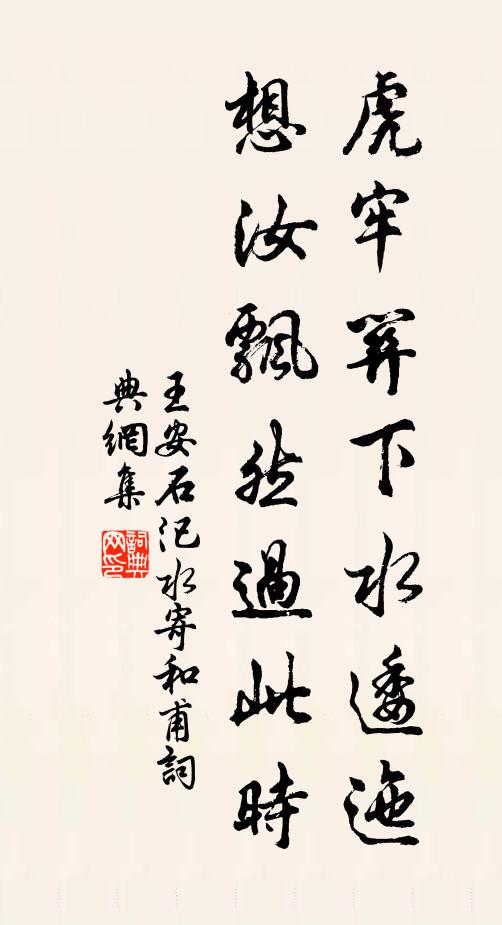 虎牢關下水逶迤
想汝飄然過此時
王安石汜水寄和甫詞
典網集
詞典网印